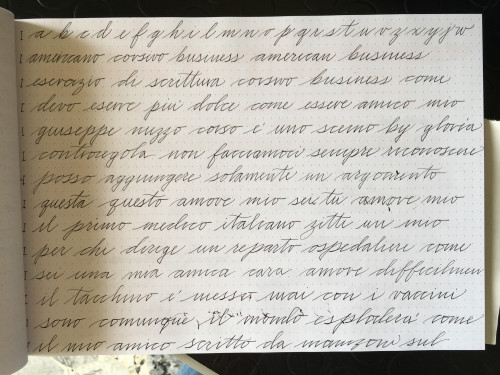 a b c d e f g h i l m n o p q r s t u v z x y j w
americano corsivo business american business
esercizio di scrittura corsivo business come
devo essere più dolce come essere amico mio
giuseppe nuzzo corso è uno scemo by gloria
controregola non facciamoci sempre riconoscere
posso aggiungere solamente un argomento
questa questo amore mio sei tu amore mio
il primo medico italiano zitti un mio
per chi dirige un reparto ospedaliere come
sei una mia amica cara amore difficilmen
il tacchino i mai con i vaccini
sono comunque il mondo esploderà come
il mio amico scritto da manzoni sul